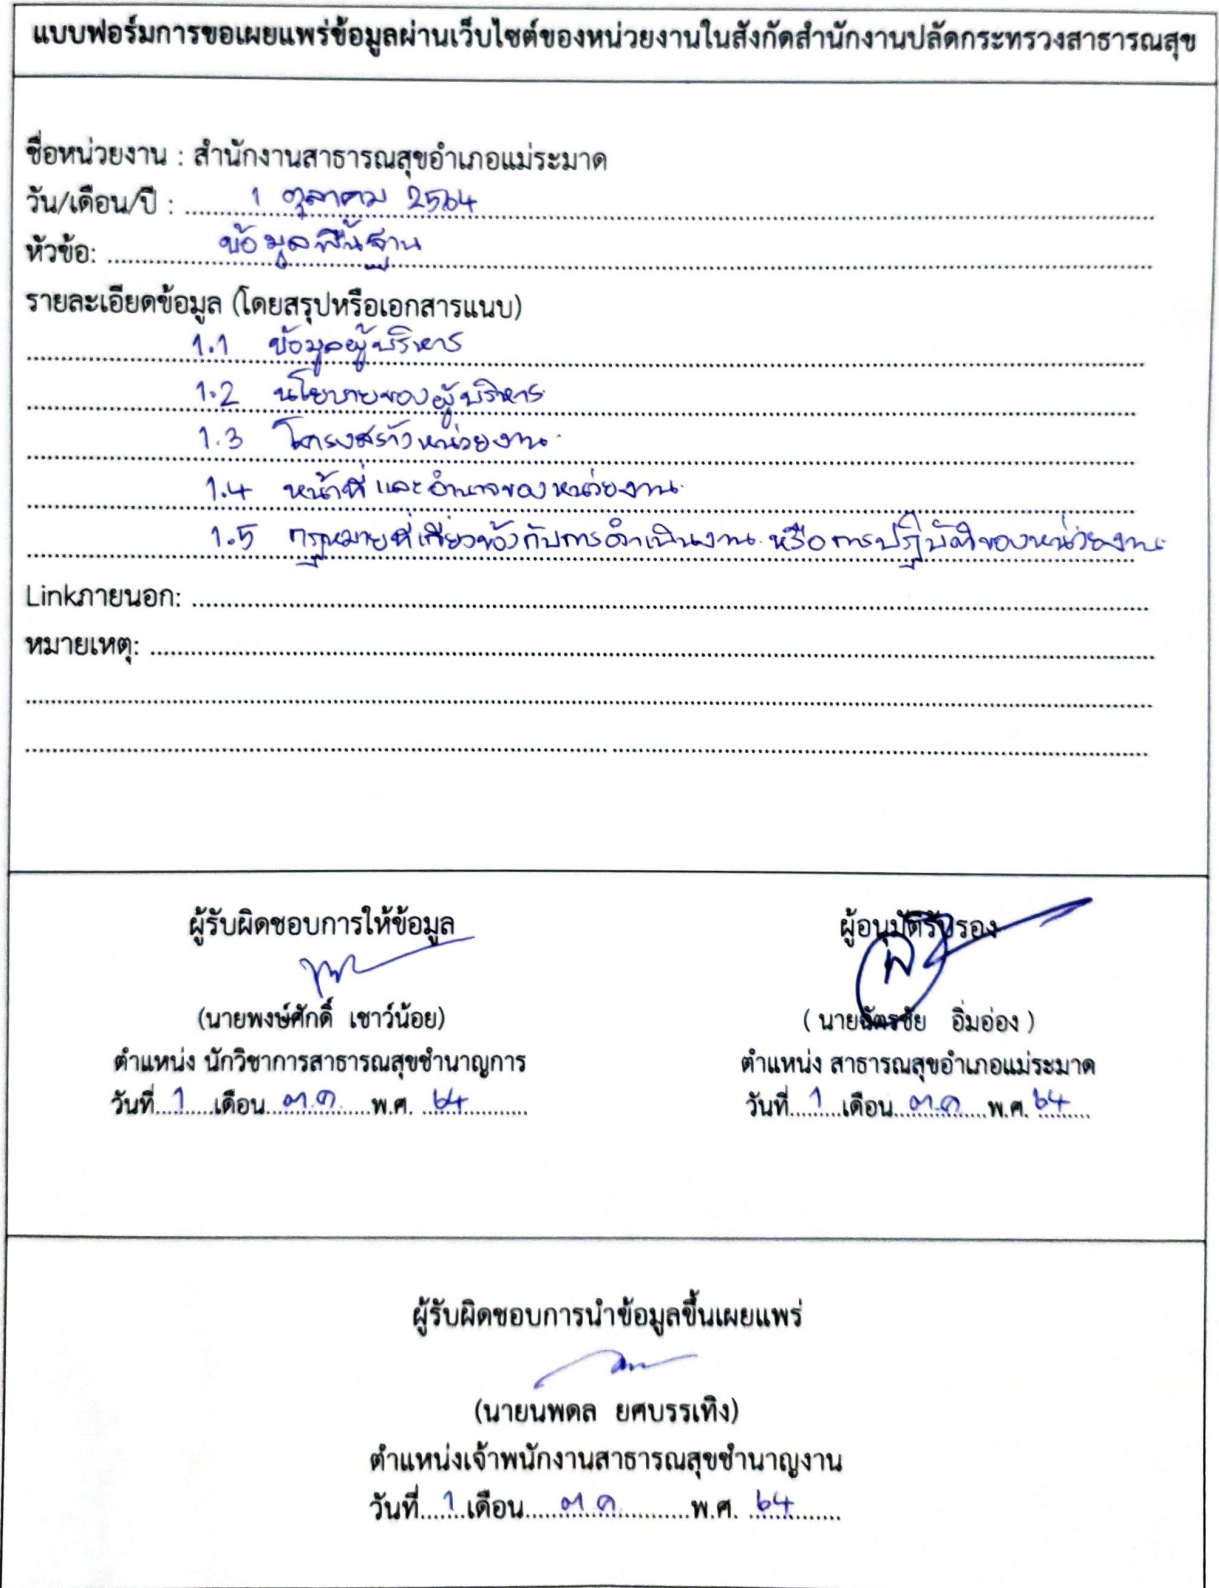 แบบฟอร์มการขอเผยแพร่ข้อมูลผ่านเว็บไซต์ของหน่วยงานในสังกัดสำนักงานปลัดกระทรวงสาธารณสุข
ชื่อหน่วยงาน : สำนักงานสาธารณสุขอำเภอแม่ระมาด
วัน/เดือน/ปี : 1 ตุลาคม 2564
หัวข้อ: ข้อมูลพื้นฐาน
รายละเอียดข้อมูล (โดยสรุปหรือเอกสารแนบ)
1.1 ข้อมูลผู้บริหาร
1.2 นโยบายของผู้บริหาร
1.3 โครงสร้างหน่วยงาน
1.4 หน้าที่และอำนาจของหน่วยงาน
1.5 กฎหมายที่เกี่ยวข้องกับการดำเนินงาน หรือการปฏิบัติของหน่วยงาน
Linkภายนอก:
หมายเหตุ:
ผู้รับผิดชอบการให้ข้อมูล ผู้อนุมัติรับรอง
(นายพงษ์ศักดิ์ เชาว์น้อย) ( นายฉัตรชัย อิ่มอ่อง )
ตำแหน่ง นักวิชาการสาธารณสุขชำนาญการ ตำแหน่ง สาธารณสุขอำเภอแม่ระมาด
วันที่ 1 เดือน ต.ค พ.ศ. 64 วันที่ 1 เดือน ต.ค พ.ศ. 64
ผู้รับผิดชอบการนำข้อมูลขึ้นเผยแพร่
(นายนพดล ยศบรรเทิง)
ตำแหน่งเจ้าพนักงานสาธารณสุขชำนาญงาน
วันที่ 1 เดือน ต.ค. พ.ศ. 64